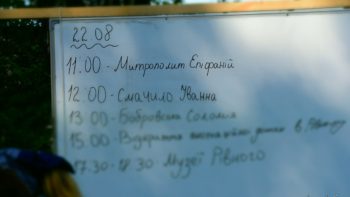 22.08
11.00 - Митрополит Епіфаній
12.00 - Смачило Іванна
13.00 - Бобровська Соломія
15.00 - Відкриття дошки в
17.30-18.30 Музеї Рівного